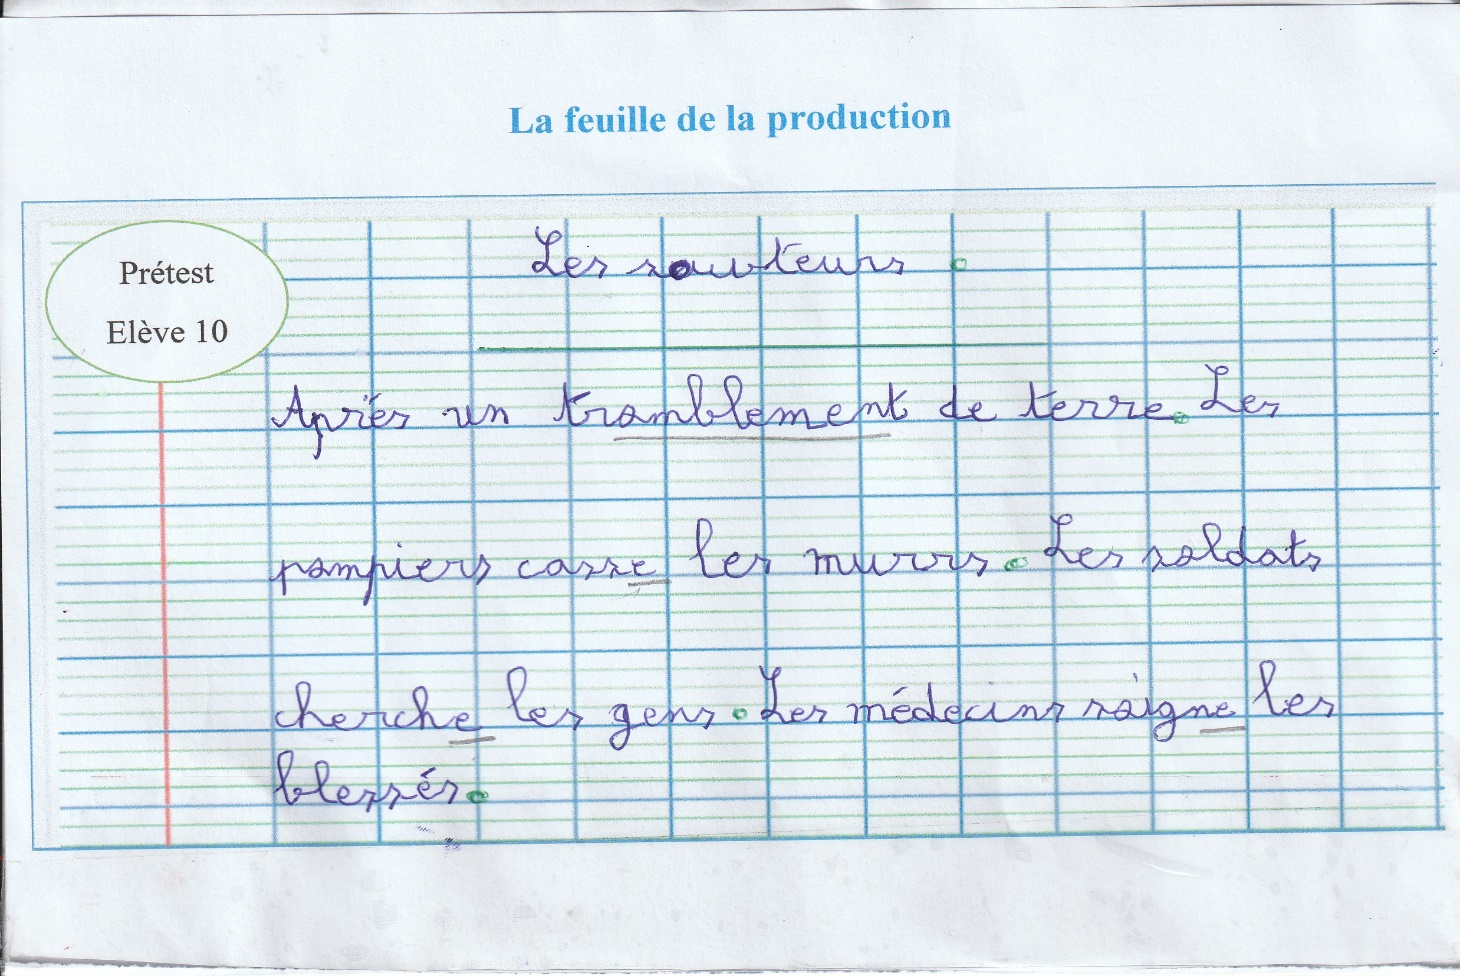 La feuille de la production
Prétest
Elève 10
Les souvteurs.
Après un tramblement de terre. Les
pampiers casse les murrs. Les soldats
cherche les gens. Les médecins saigne les
blessés.